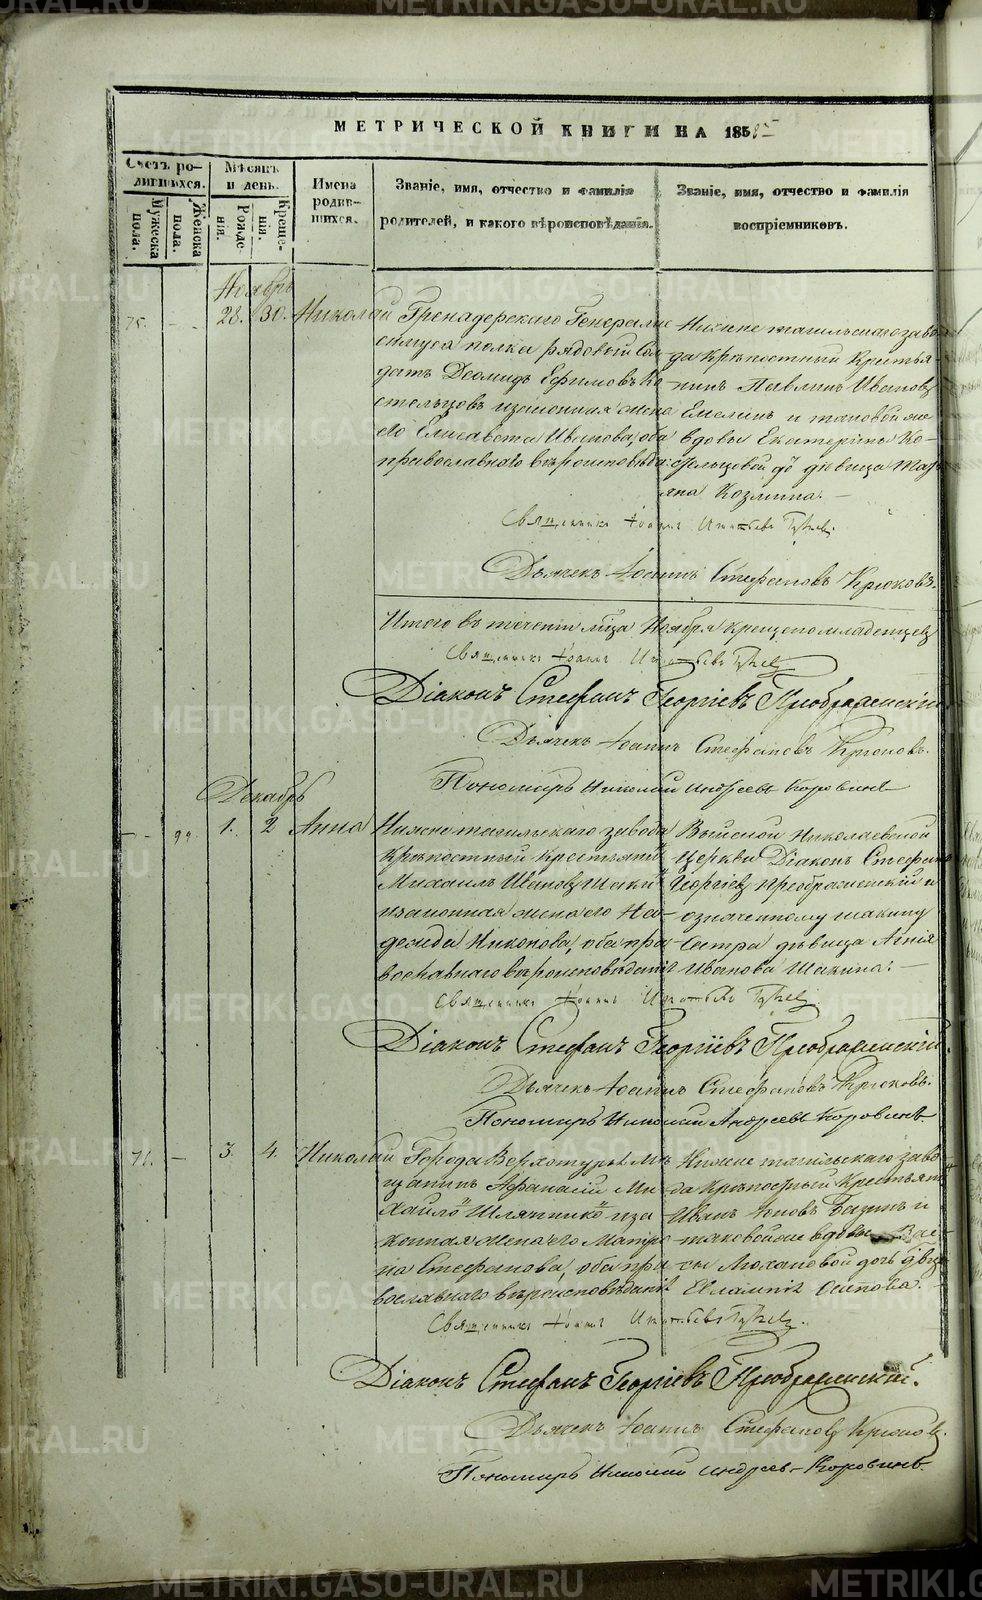 МЕТРИЧЕСКОЙ КНИГИ НА 185
Счетъ родившихся.
Мужеска пола.
Женска пола.
Мѣсяцъ и день.
Рожденія.
Крещенія.
Имена родившихся.
Званіе, имя, отчество и фамилія
родителей, и какого вѣроисповѣданія.
Званіе, имя, отчество и фамилія
воспріемниковъ.
Ноябрь
28. 30. Николай
Гренадерскаго Генерали
симуса полка рядовый Сол
датъ Деомидъ Ефимовъ Ко
стельцовъ изаконная жена
его Елисавета Иванова, оба
православнаго вѣроисповѣда:
Нижне тагильскаго заво
да Крѣпостный Крестья-
нинъ Павлинъ Ивановъ
Емелинъ и таковой же
вдовы Екатерины Ко-
стельцовой дочь дѣвица Мар
Козмина.
Священникъ Іоаннъ
Дьячекъ Іоаннъ Стефановъ Крюковъ.
Итого въ теченіи мѣца Ноября крещено младенцевъ
Священникъ Іоаннъ
Діаконъ Стефанъ Георгіевъ Преображенскій
Дьячекъ Іоаннъ Стефановъ Крюковъ.
Пономарь Николай Андреевъ Коровинъ
Декабрь
1. 2 Анна
Нижне тагильскаго завода
Крѣпостный Крестьянинъ
Михаилъ Ивановъ Шакинъ
изаконная жена его На-
дежда Никонова, оба пра-
вославнаго вѣроисповѣданія
Выйской Николаевской
Церкви Діаконъ Стефанъ
Георгіевъ Преображенскій и
означенному Шакину
сестра дѣвица Агнія
Иванова Шакина.
Священникъ Іоаннъ
Діаконъ Стефанъ Георгіевъ Преображенскій.
Дьячекъ Іоаннъ Стефановъ Крюковъ.
Пономарь Николай Андреевъ Коровинъ
71. - 3. 4. Николай
Города Верхотурья мѣ
щанинъ Афанасій Ми
хайловъ Шляпниковъ иза
конная жена его Матре
на Стефанова, оба пра
вославнаго вѣроисповѣданія
Нижне тагильскаго заво
да Крѣпостный Крестьян
Иванъ Іововъ Базинъ и
таковой же вдовы
дочь дѣвиц
Евлампія Осипова.
Священникъ Іоаннъ
Діаконъ Стефанъ Георгіевъ Преображенскій.
Дьячекъ Іоаннъ Стефановъ Крюковъ.
Пономарь Николай Андреевъ Коровинъ
METRIKI.GASO-URAL.RU